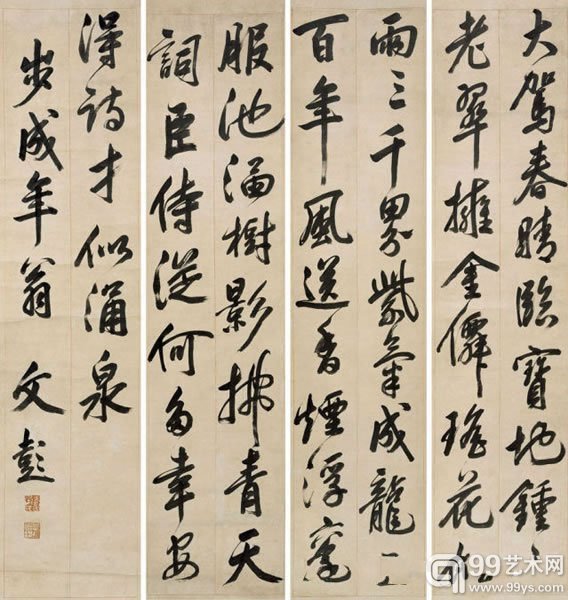 大駕春晴臨寶地鍾
老翠擁金僊瑤花
雨三千界紫氣成龍二
百年風送香煙浮袞
服池涵樹影拂青天
詞臣侍從何多幸安
得詩才似涌泉
步成年翁 文彭
99艺术网
www.99ys.com